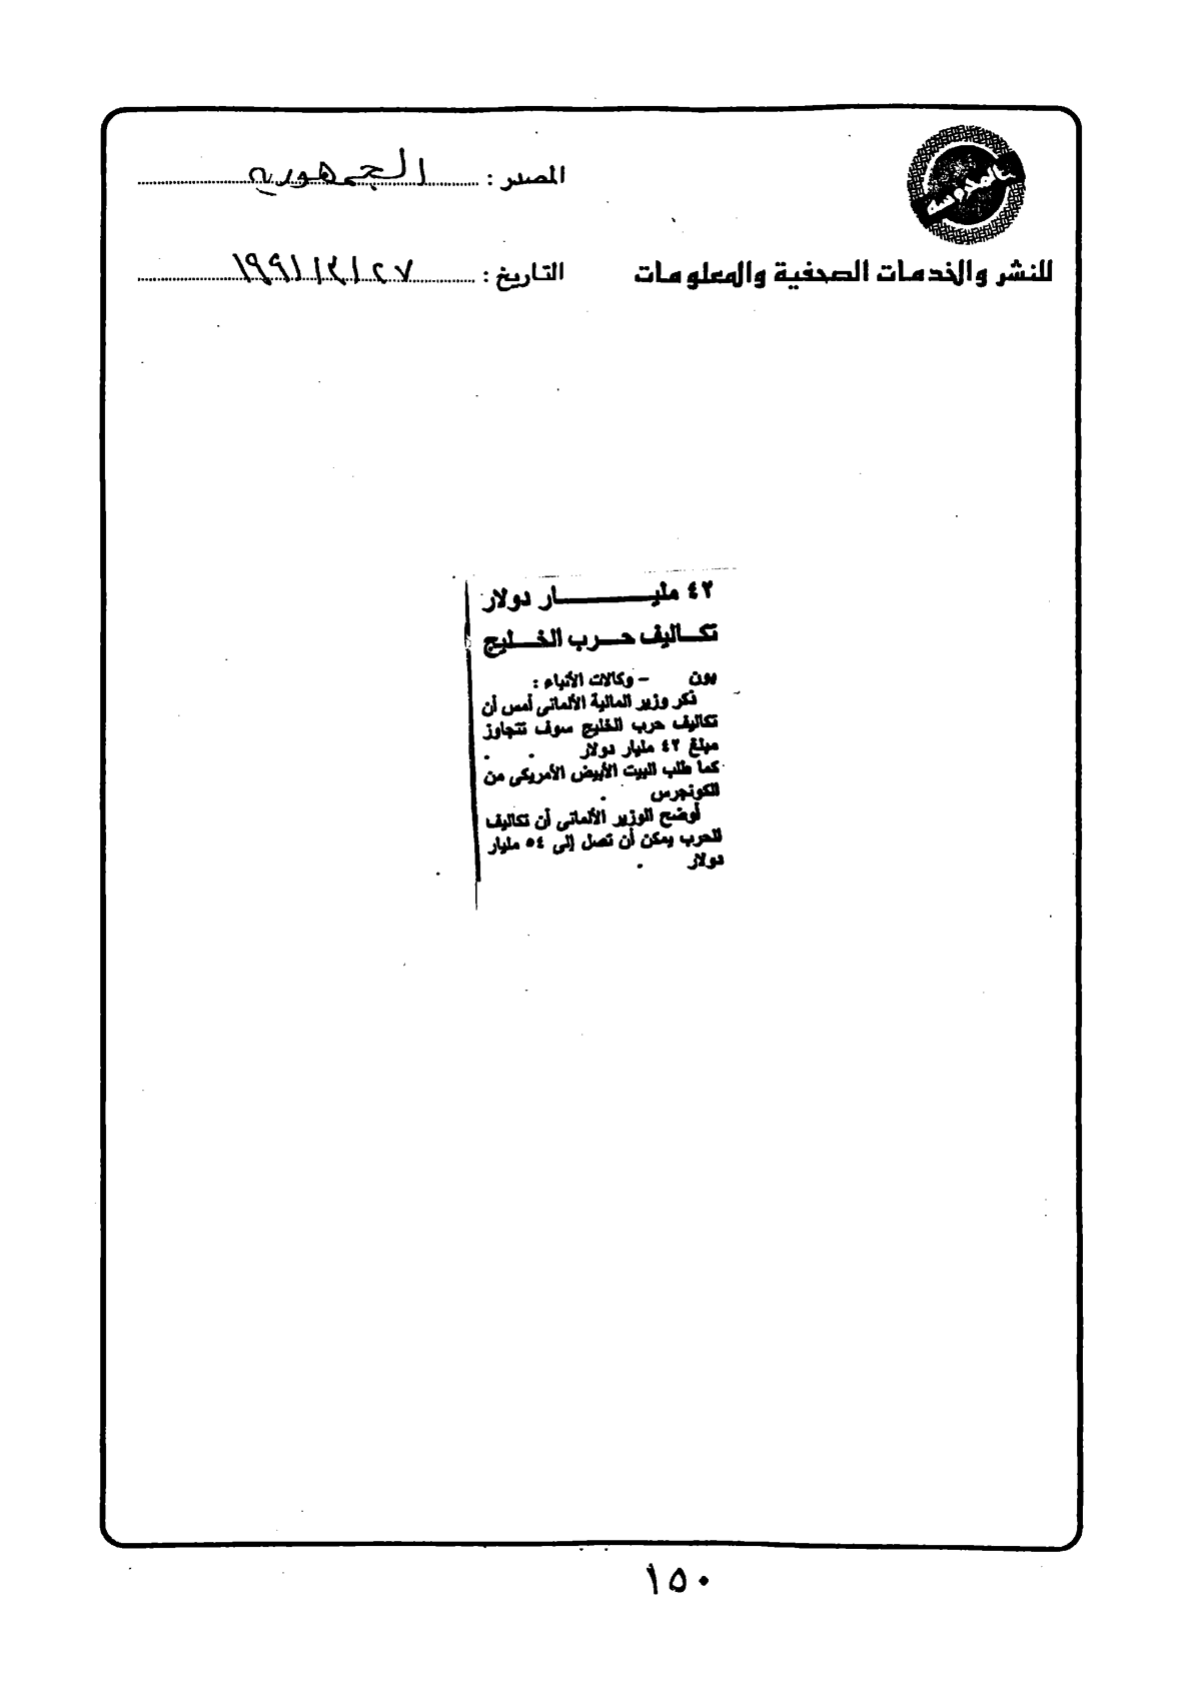 المحروسة
المصدر : الجمهورية
للنشر والخدمات الصحفية والمعلومات
التاريخ : ٢٧ / ٣ / ١٩٩١
٤٢ مليـــــــار دولار
تكـــاليف حـــرب الخـــليج
بون – وكالات الأنباء :
ذكر وزير المالية الألمانى أمس أن
تكاليف حرب الخليج سوف تتجاوز
مبلغ ٤٢ مليار دولار .
كما طلب البيت الأبيض الأمريكى من
الكونجرس .
أوضح الوزير الألمانى أن تكاليف
الحرب يمكن أن تصل إلى ٥٤ مليار
دولار .
١٥٠